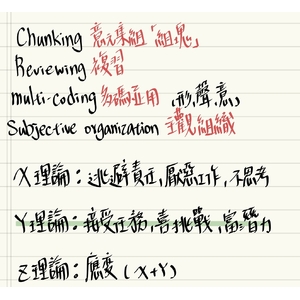 Chunking 意元集組「組塊」
Reviewing 複習
multi-coding 多碼並用 (形,聲,意)
Subjective organization 主觀組織
X理論:逃避責任,厭惡工作,不思考
Y理論:接受任務,喜挑戰,富潛力
Z理論:應變(X+Y)